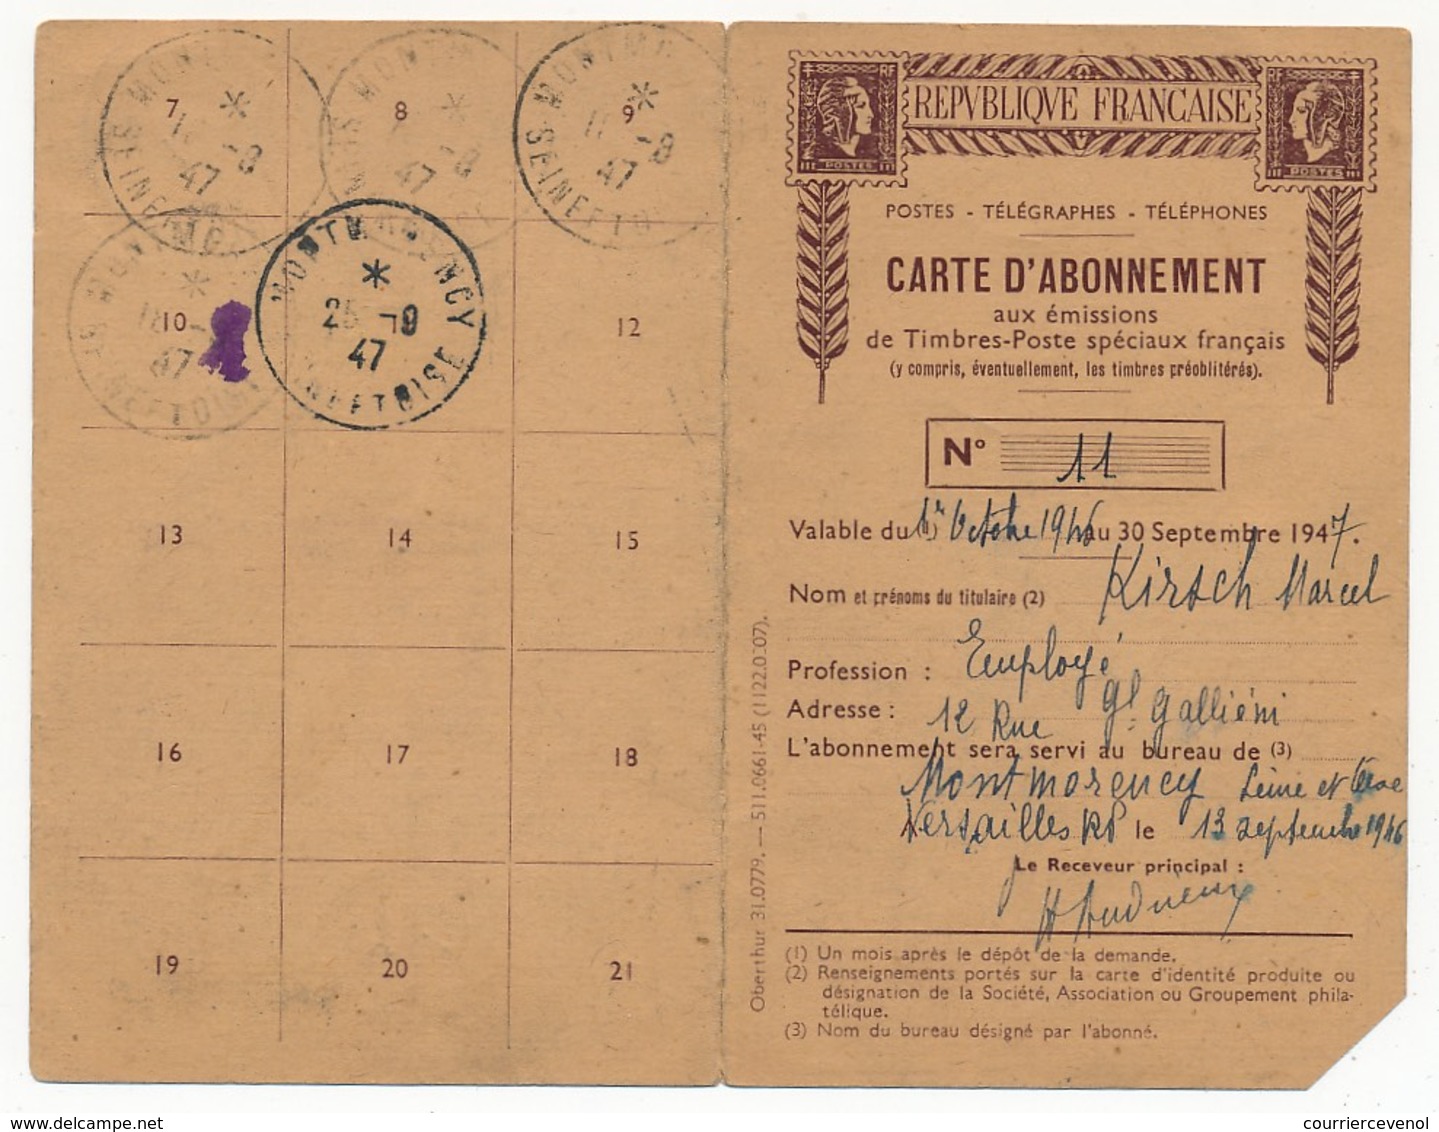 7
8
9
10
12
13
14
15
16
17
18
19
20
21
MONTM
*
-8
47
SEINE
MONTM
*
47
MONTM
*
-8
47
SEINE ET O
MONT
*
18
47
ET OISE
MONTM NCY
*
25 -9
47
ET OISE
RF
POSTES
REPVBLIQVE FRANCAISE
RF
POSTES
POSTES - TÉLÉGRAPHES - TÉLÉPHONES
CARTE D'ABONNEMENT
aux émissions
de Timbres-Poste spéciaux français
(y compris, éventuellement, les timbres préoblitérés).
N° 11
Valable du (1) 1er Octobre 1946 au 30 Septembre 1947.
Nom et prénoms du titulaire (2) Kirsch Marcel
Profession : Employé
Adresse : 12 Rue Gl. Galliéni
L'abonnement sera servi au bureau de (3)
Montmorency Seine et Oise
A Versailles RP le 13 septembre 1946
Le Receveur principal :
(1) Un mois après le dépôt de la demande.
(2) Renseignements portés sur la carte d'identité produite ou
désignation de la Société, Association ou Groupement phila-
télique.
(3) Nom du bureau désigné par l'abonné.
Oberthur 31.0779. — 511.0661-45 (1122.0-07).
courriercevenol